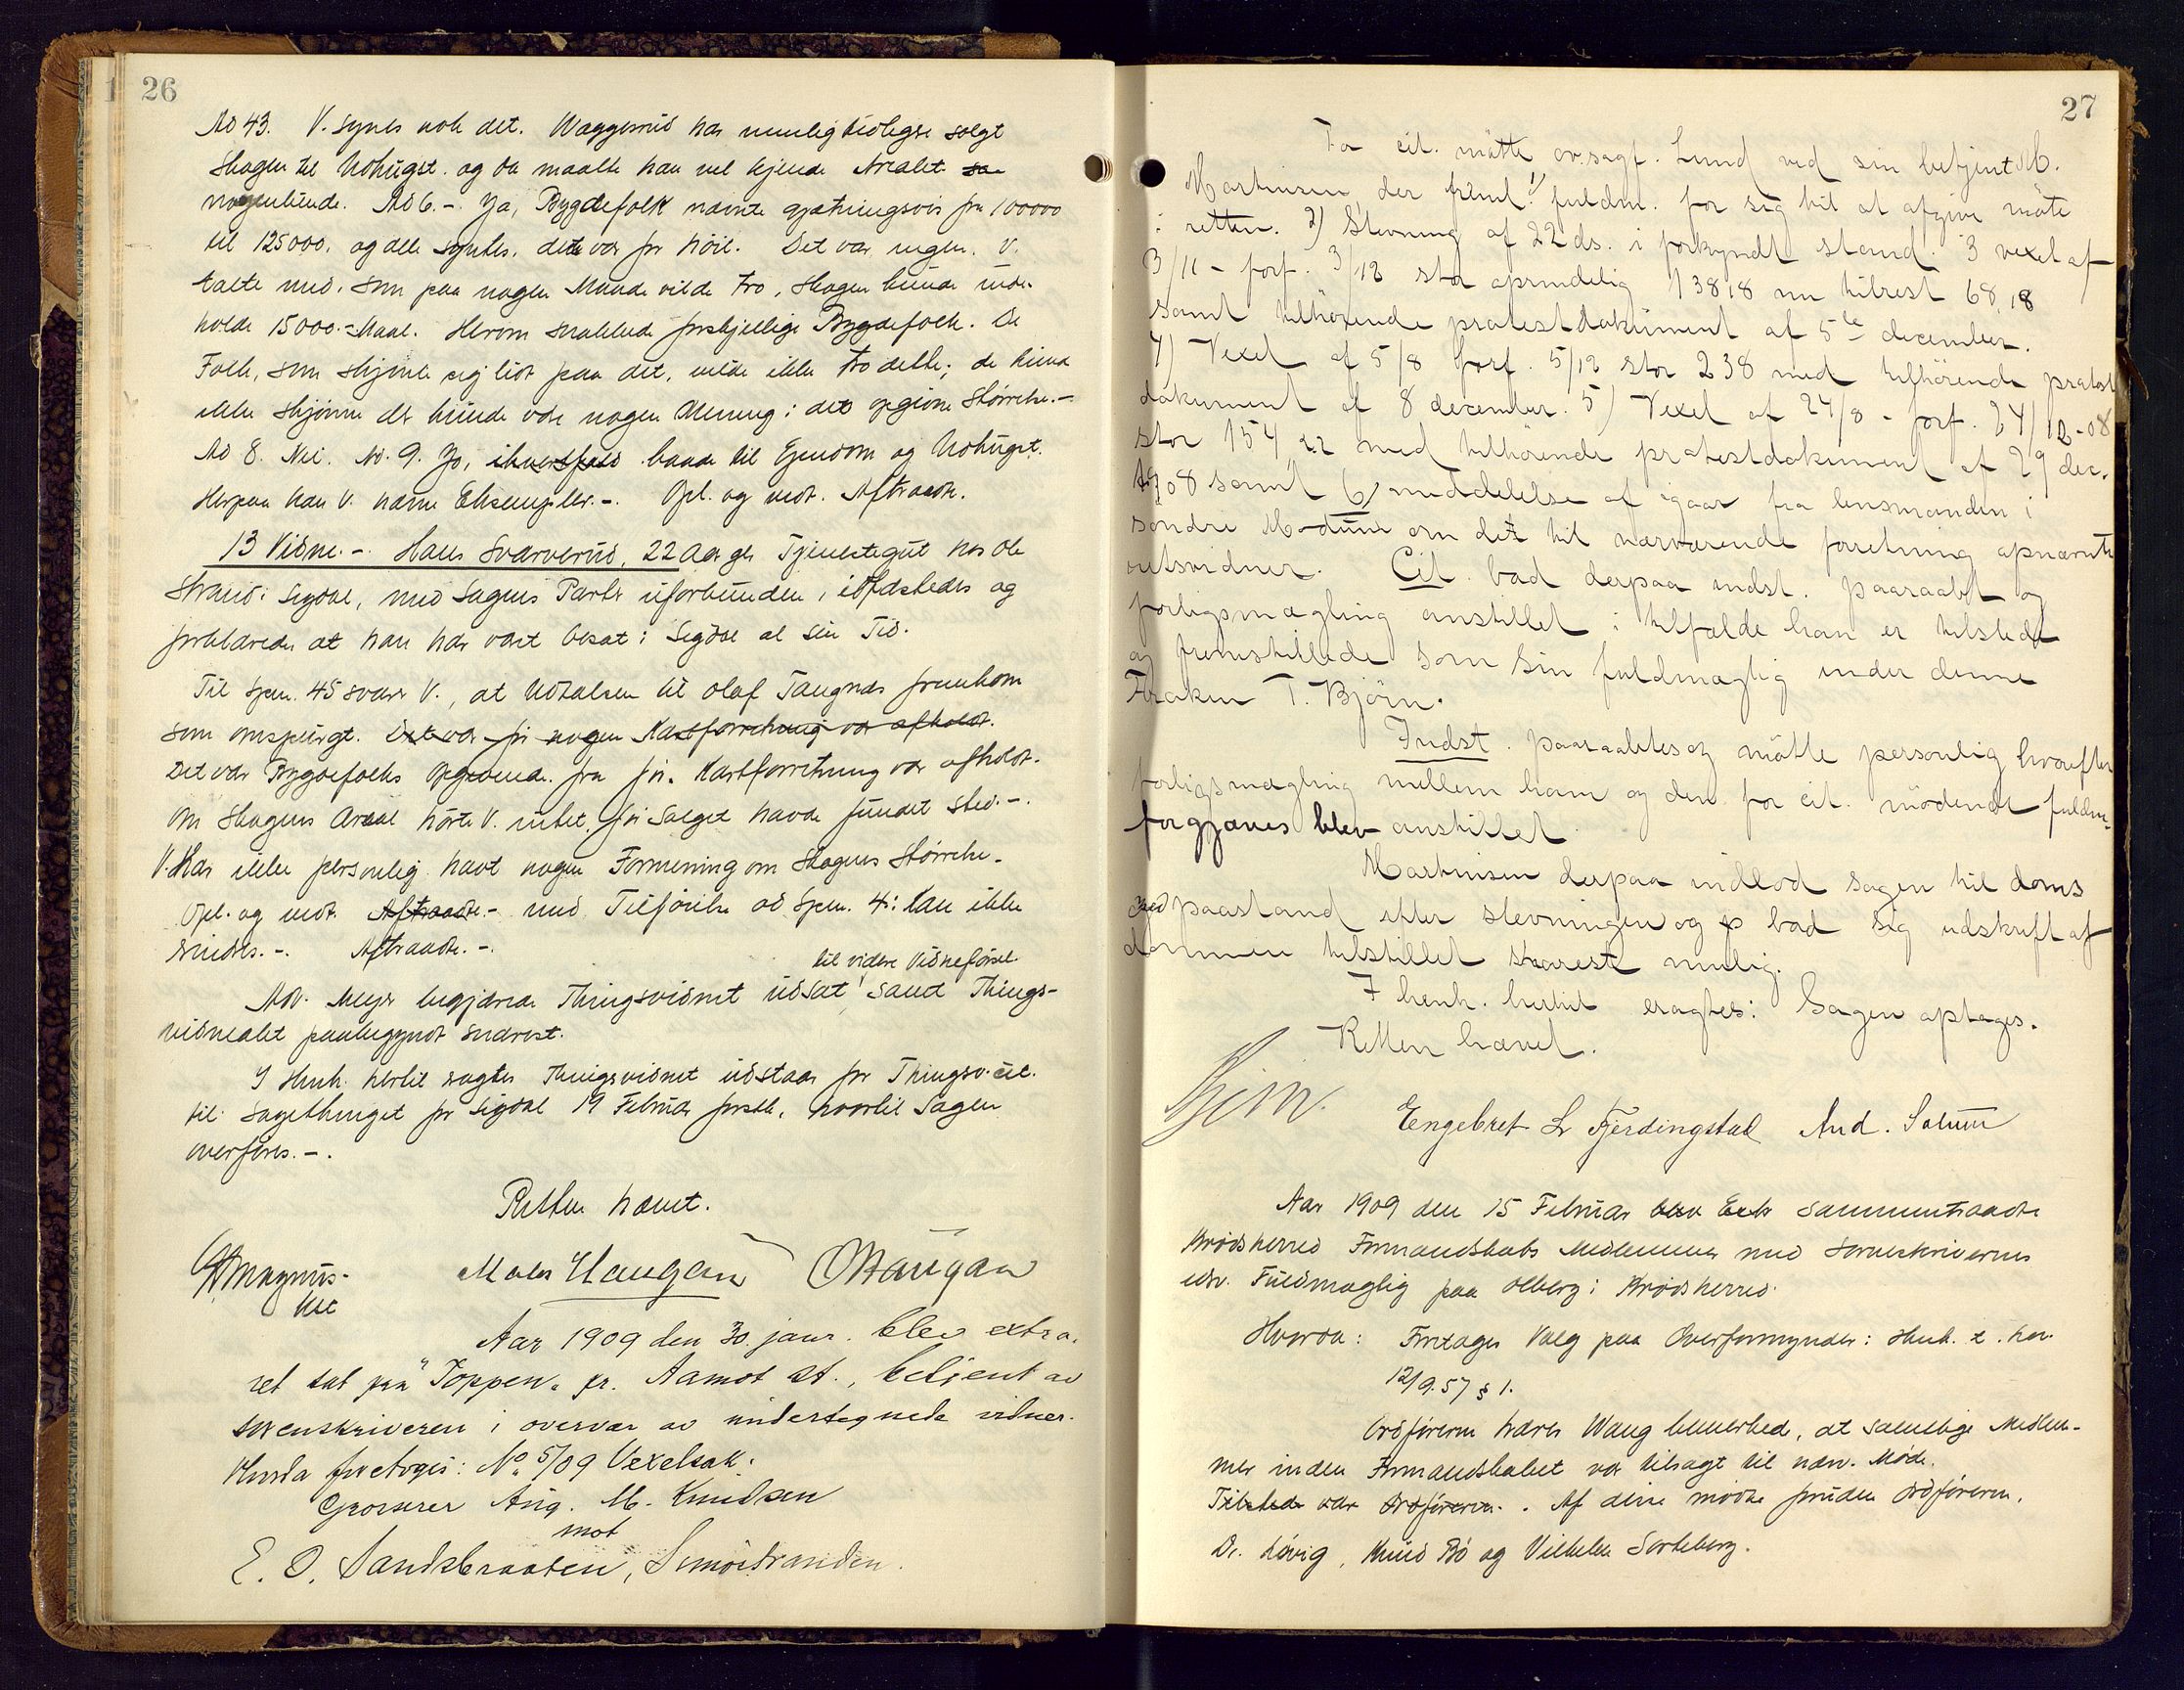 26
Ad 43. V. synes nok det. Waggesrud har nemlig tidligere solgt
Skogen til Udhugst. og da maatte han vel kjende Arealet
nogenlunde. Ad 6.- Ja, Bygdefolk nævnte gjætningsvis fra 100000
til 125000. og alle syntes. dette var for höit. Det var ingen. V.
talte med. som paa nogen Maade vilde tro, Skogen kunde inde-
holde 15000.- Maal. Herom snakked forskjellige Bygdefolk. De
Folk, som skjønte sig lidt paa det, vilde ikke tro dette; de kunde
ikke skjønne der kunde være nogen Mening i det opgivne Størrelse.-
Ad 8. Nei. Ad. 9. Jo, ihvertfald baade til Eiendom og Udhugst.
Herpaa kan V. nævne Eksempler.-. Opl. og vedt. Aftraadte.
13 Vidne.-. Hans Sværverud, 22 Aar gl. Tjenestegut hos Ole
Strand i Sigdal, med Sagens Parter uforbunden, edfæstedes og
forklarede at han har været bosat i Sigdal al sin Tid.
Til Spm. 45 svarer V., at Udtalsen til Olaf Tangnæs fremkom
som omspurgt. Det var för nogen Kartforretning var afholdt.
Det var Bygdefolks Opgivende. fra för. Kartforretning var afholdt.
Om Skogens Areal hörte V. intet, för Salget havde fundet sted.-.
V. Har ikke personlig havt nogen Formening om Skogens Størrelse.
Opl. og vedt. Aftraadte.- med Tilföielse ad Spm. 4: Kan ikke
mindes.-. Aftraadte.-.
til videre Vidneförsel
Adv. Meyer begjærede Thingsvidnet udsat samt Things-
vidneaktet paabegyndt snarest.
I Henh. hertil eragtes Thingsvidnet udstaar for Thingsv. cit.
til Sagethinget for Sigdal 19 Februar förstk., hvortil Sagen
overføres.-.
Retten hævet.
Magnus.
kst
Mals Haugan OHaugan
Aar 1909 den 30. janr. blev extra.
ret sat paa "Toppen" pr. Aamot st., betjent av
sorenskriveren i overvær av undertegnede vidner.
Hvorda foretoges: No 5/09 Vexelsak:
Grosserer Aug. M. Knudsen
mot
E. O. Sandsbraaten, Simöstranden.
27
For cit. mötte ov.sagf. Lund ved sin betjent M.
Martinsen, der freml. 1) fuldm. for sig til at afgive möte
i retten. 2) Stevning af 22 ds. i forkyndt stand. 3 vexel af
3/11 - forf. 3/12 stor oprindelig 138 18 nu tilrest 68,18
samt tilhörende protestdokument af 5te december.
4) Vexel af 5/8 forf. 5/12 stor 238 med tilhörende protest
dokument af 8 december. 5) Vexel af 24/8 - forf. 24/12-08
stor 154,22 med tilhörende protestdokument af 29 dec.
1908 samt 6) meddelelse af igaar fra lensmanden i
söndre Modum om det til nærværende forretning opnævnte
retsvidner. Cit. bad derpaa indst. paaraabt og
forligsmægling anstillet i tilfælde han er tilstede
og fremstillede som sin fuldmægtig under denne
Frøken T. Björn.
Indst. paaraabtes og mötte personlig hvorefter
forligsmægling mellem ham og den for cit. mödende fuldm.
forgjæves blev anstillet
Martinsen derpaa indlod sagen til doms
med paastand efter stevningen og bad sig udskrift af
dommen tilstillet snarest mulig.
I henh. hertil eragtes: Sagen optages.
Retten hævet.
Engebret L Fjerdingstad And. Solum
Aar 1909 den 15 Februar blev sammentraadte
Krødsherred Formandskabs Medlemmer med Sorenskriverens
edsv. Fuldmægtig paa Olberg i Krødsherred.
Hvorda: Foretoges Valg paa Overformynder i Henh. t. Lov.
12/9.57 § 1.
Ordføreren Anders Waug bemerked, at samtlige Medlem-
mer inden Formandskabet var tilsagt til nærv. Møde.
Tilstede var Ordføreren. Af disse mødte foruden Ordføreren,
Dr. Løvig, Knud Bö og Vilhelm Sorteberg.